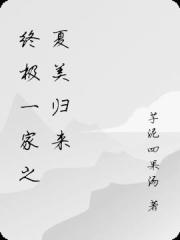 终极一家之
夏美归来
芋泥四果汤 著